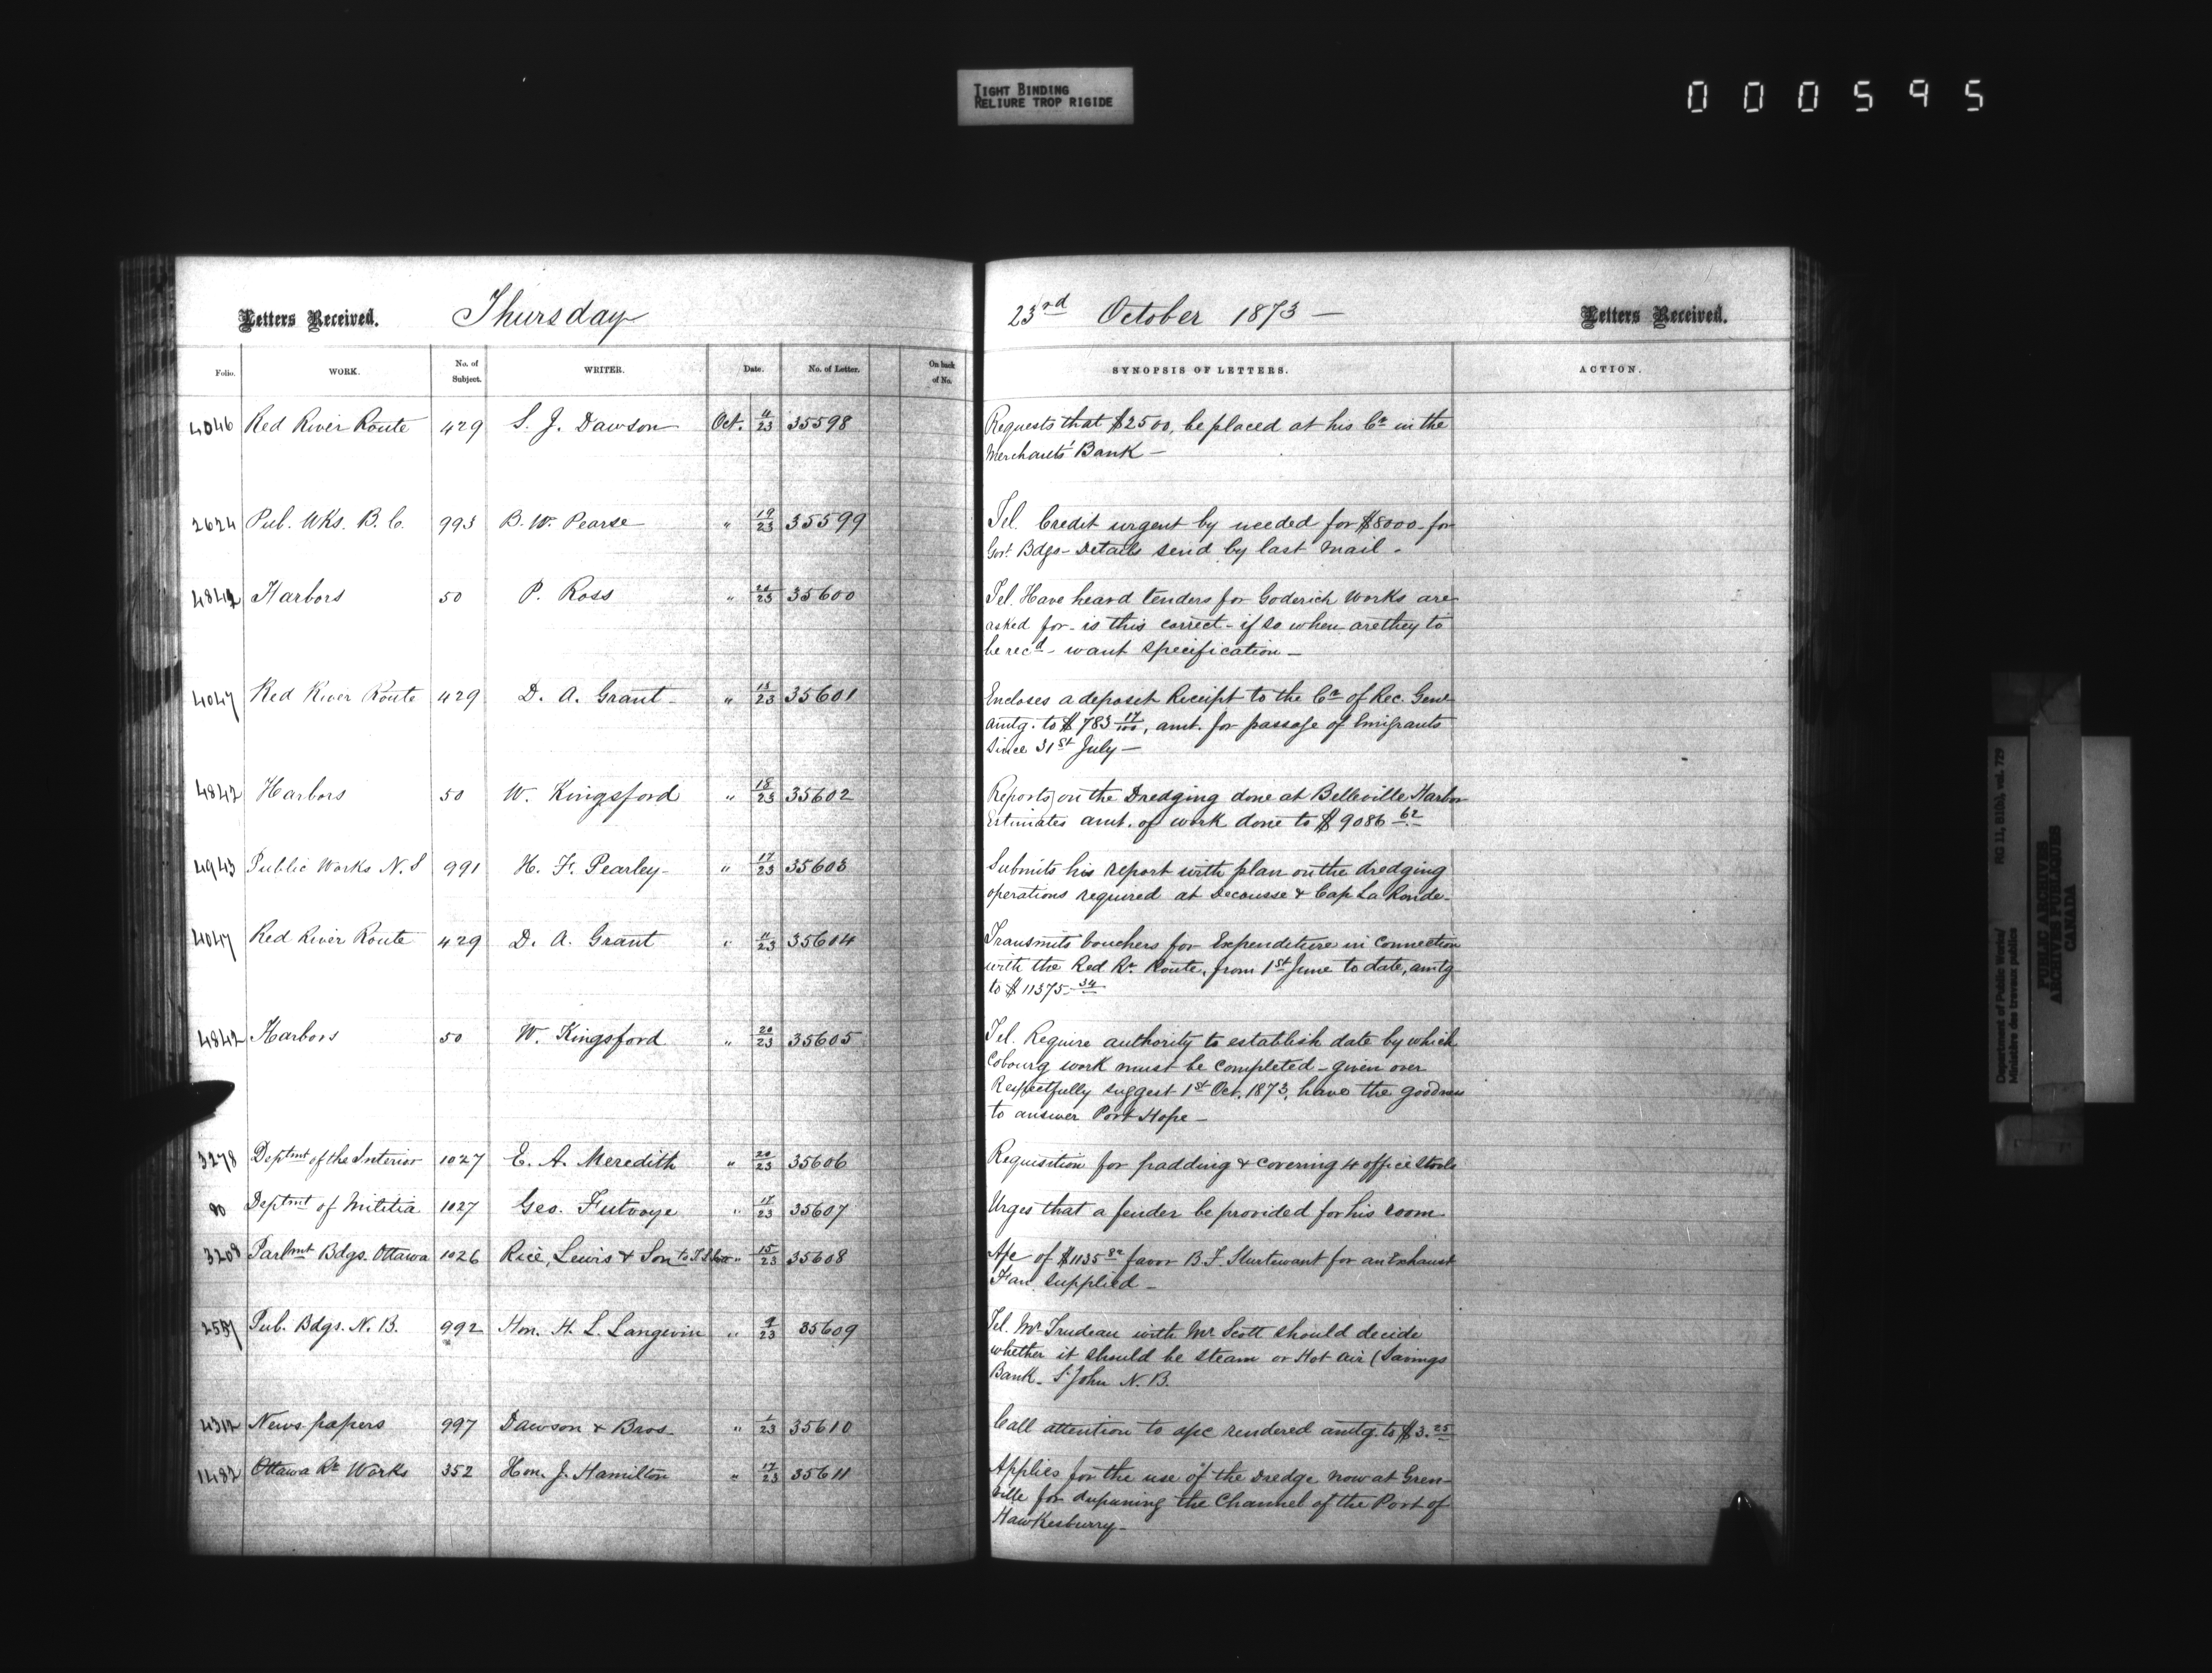 TIGHT BINDING
RELIURE TROP RIGIDE
000595
Letters Received. Thursday 23rd October 1873 — Letters Received.
Folio. WORK. No. of Subject. WRITER. Date. No. of Letter. On back of No. SYNOPSIS OF LETTERS. ACTION.
4046 Red River Route 429 S. J. Dawson Oct. 11/23 35598 Requests that $2500, be placed at his Cr in the
Merchants' Bank —
2624 Pub. Wks. B. C. 993 B. W. Pearse " 19/23 35599 Tel. Credit urgent by needed for $8000 - for
Govt Bdgs - Details send by last mail -
4842 Harbors 50 P. Ross " 20/23 35600 Tel. Have heard tenders for Goderich Works are
asked for - is this correct - if so when are they to
be recd - want specification —
4047 Red River Route 429 D. A. Grant " 13/23 35601 Encloses a deposit Receipt to the Cr of Rec. Genl
amtg. to $783 17/100, amt. for passage of Emigrants
since 31st July —
4842 Harbors 50 W. Kingsford " 18/23 35602 Reports on the Dredging done at Belleville Harbor
Estimates amt. of work done to $9086 62
4943 Public Works N. S 991 H. F. Pearley " 17/23 35603 Submits his report with plan on the dredging
operations required at Decousse & Cap La Ronde -
4047 Red River Route 429 D. A. Grant " 11/23 35604 Transmits vouchers for Expenditure in connection
with the Red Rr Route, from 1st June to date, amtg
to $11375 34
4842 Harbors 50 W. Kingsford " 20/23 35605 Tel. Require authority to establish date by which
Cobourg work must be completed - given over
Respectfully suggest 1st Oct. 1873, have the goodness
to answer Port Hope —
3278 Deptmt of the Interior 1027 E. A. Meredith " 20/23 35606 Requisition for padding & covering 4 office Stools
90 Deptmt of Militia 1027 Geo. Futvoye " 17/23 35607 Urges that a fender be provided for his room
3208 Parlmt Bdgs. Ottawa 1026 Rice, Lewis & Son to " 15/23 35608 A/c of $1135 82 favor B. F. Sturtevant for an Exhaust
Fan supplied —
Pub. Bdgs. N. B. 992 Hon. H. L. Langevin " 9/23 35609 Tel. Mr Trudeau with Mr Scott should decide
whether it should be steam or Hot air (Savings
Bank - St John N. B.
4312 News papers 997 Dawson & Bros " 1/23 35610 Call attention to a/c rendered amtg. to $3.25
1482 Ottawa Rr Works 352 Hon. J. Hamilton " 17/23 35611 Applies for the use of the Dredge now at Gren-
ville for deepening the Channel of the Port of
Hawkesburry —
Department of Public Works/
Ministère des travaux publics
RG 11, B1(b), vol. 729
PUBLIC ARCHIVES
ARCHIVES PUBLIQUES
CANADA